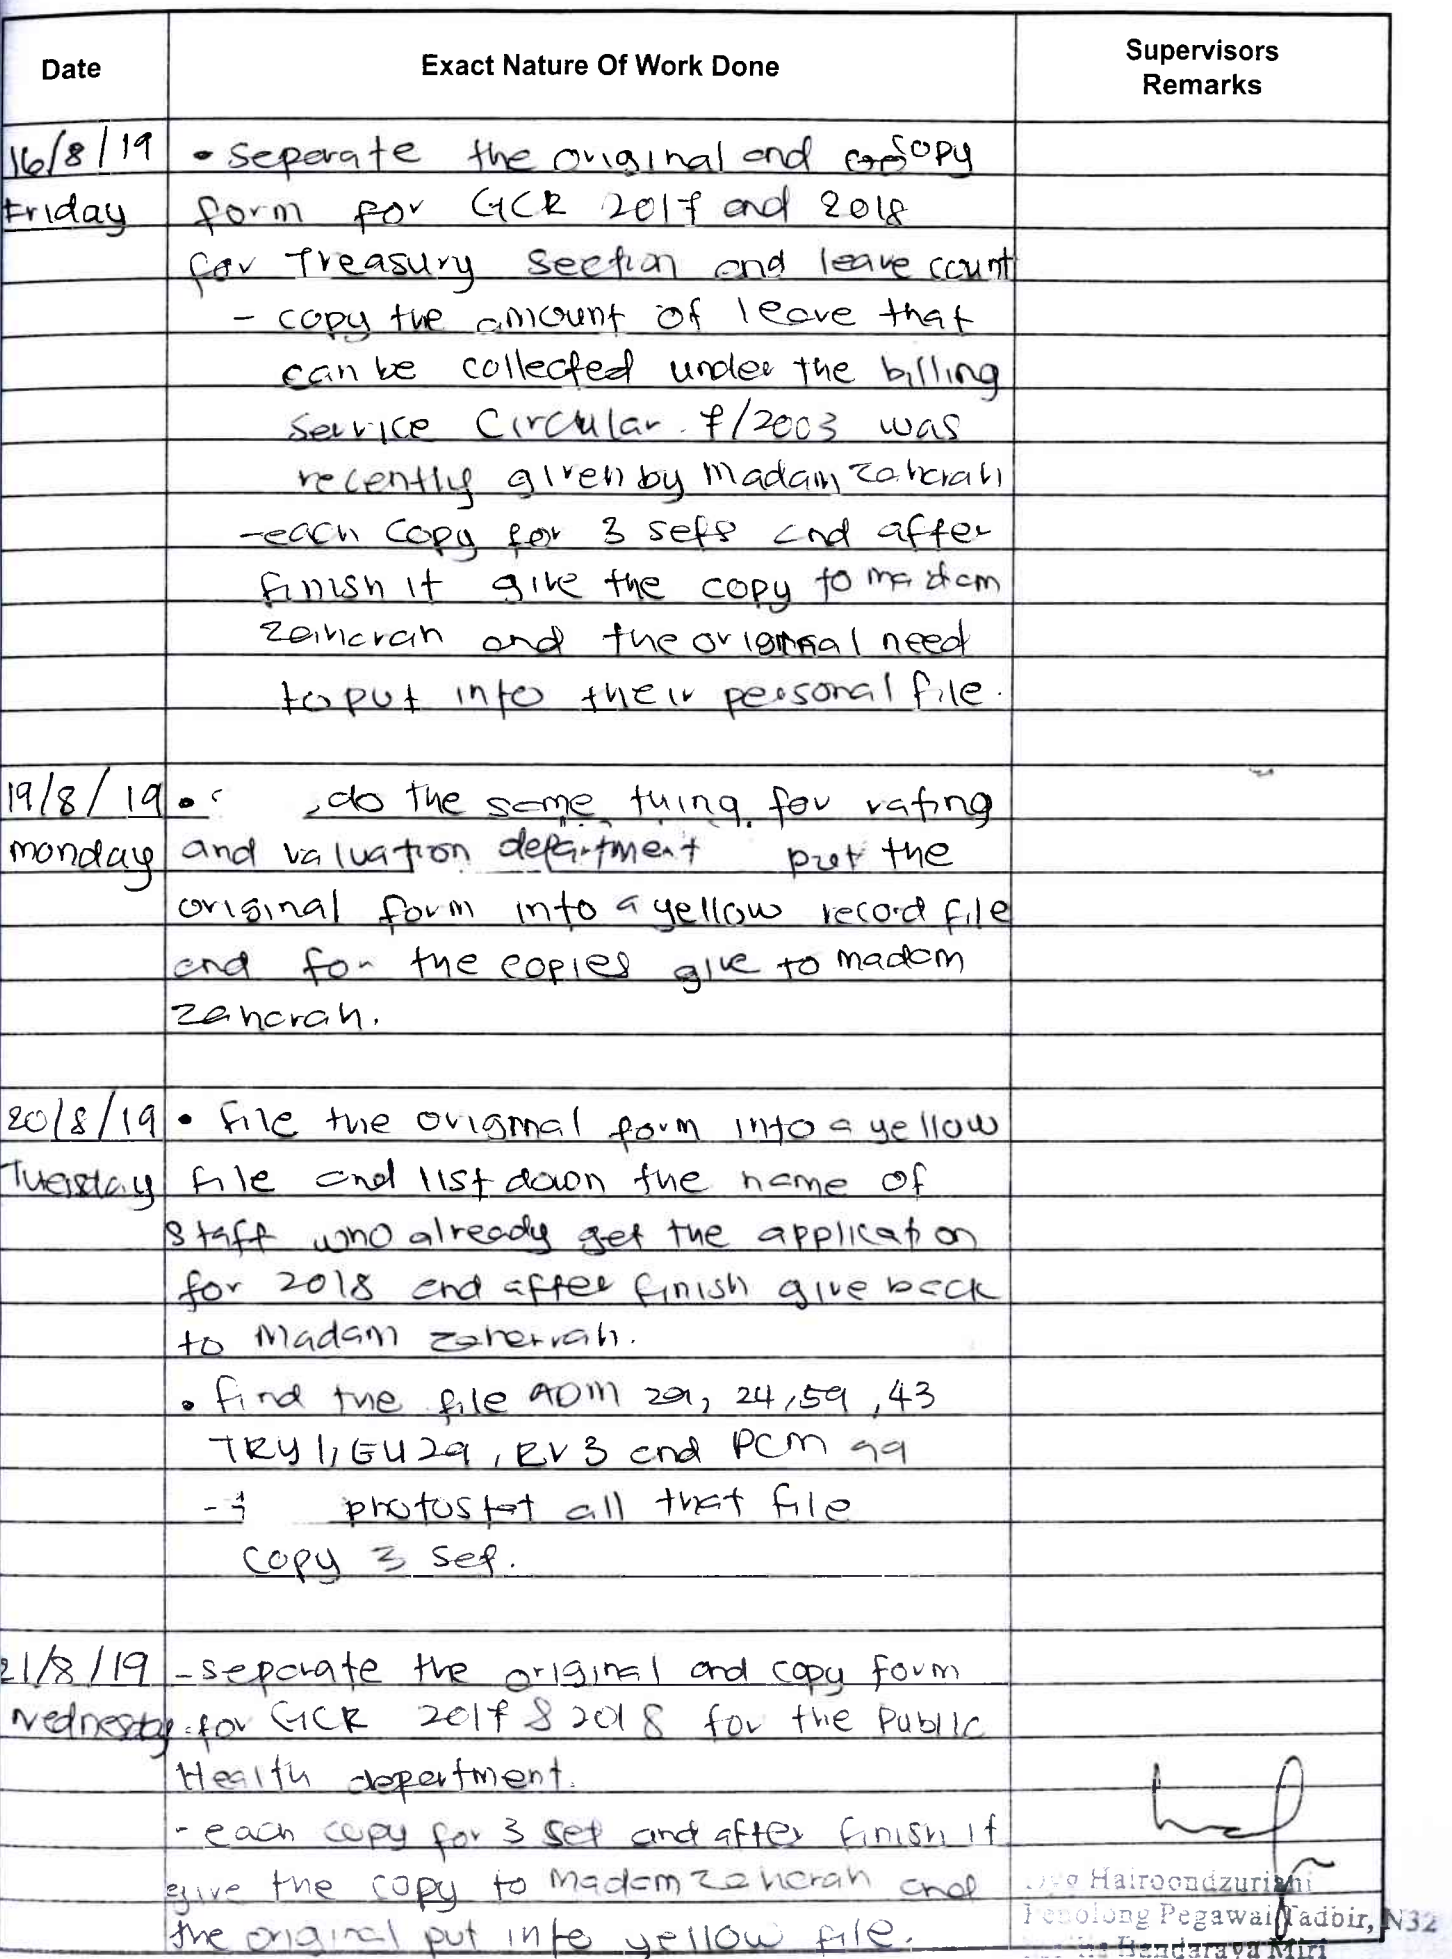 Date Exact Nature Of Work Done Supervisors Remarks
16/8/19 • seperate the original and copy
Friday form for GCR 2017 and 2018
for Treasury section and leave count
- copy the amount of leave that
can be collected under the billing
Service Circular 7/2003 was
recently given by Madam Zaharah
- each copy for 3 sets and after
finish it give the copy to madam
Zaharah and the original need
to put into their personal file.
19/8/19 • do the same thing for rating
monday and valuation department put the
original form into a yellow record file
and for the copies give to madam
Zaharah.
20/8/19 • file the original form into a yellow
Tuesday file and list down the name of
staff who already get the application
for 2018 and after finish give back
to Madam Zaherrah.
• find the file ADM 24, 59, 43
TRY 1, EU 29, RV 3 and PCM 99
- photostat all that file
copy 3 set.
21/8/19 - seperate the original and copy form
Wednesday for GCR 2017 & 2018 for the Public
Health department.
- each copy for 3 set and after finish it
give the copy to Madam Zaharah and
the original put into yellow file.
Hairoondzuriani
Penolong Pegawai Tadbir, N32
Bandaraya Miri